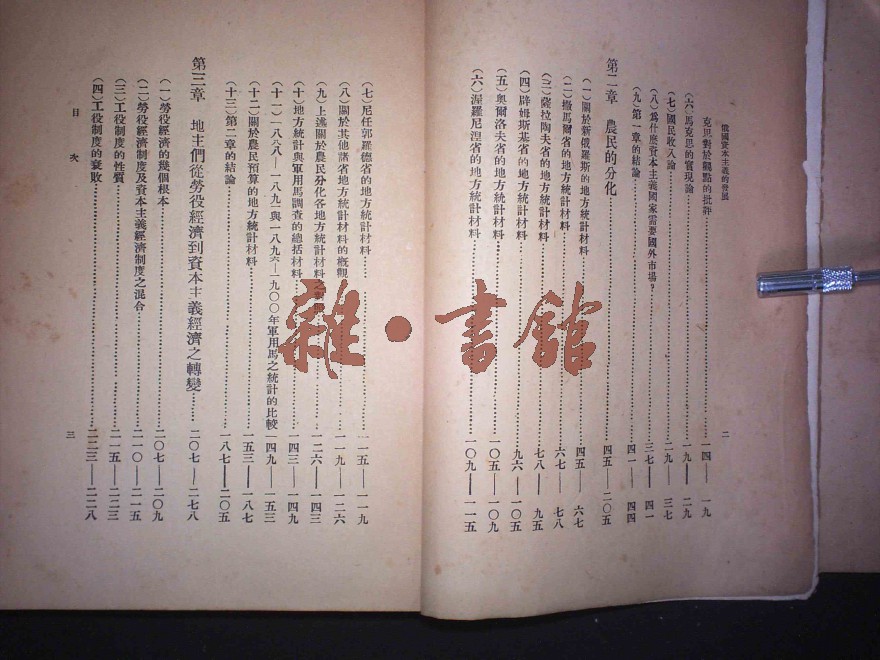 俄國資本主義的發展
克思對於觀點的批評……一四——一九
(六)馬克思的實現論……一九——二九
(七)國民收入論……二九——三七
(八)爲什麽資本主義國家需要國外市場?……三七——四一
(九)第一章的結論……四一——四四
第二章 農民的分化……四五——二〇五
(一)關於新俄羅斯的地方統計材料……四五——六七
(二)撒馬爾省的地方統計材料……六七——七八
(三)薩拉陶夫省的地方統計材料……七八——九五
(四)辟姆斯基省的地方統計材料……九六——一〇五
(五)奧爾洛夫省的地方統計材料……一〇五——一〇九
(六)渥羅尼涅省的地方統計材料……一〇九——一一五
二
(七)尼任郭羅德省的地方統計材料……一一五——一一九
(八)關於其他諸省地方統計材料的概觀……一一九——一二六
(九)上述關於農民分化各地方統計材料之……一二六——一四三
(十)地方統計與軍用馬調查的總括材料……一四三——一四九
(十一)一八八八—一八九一與一八九六—一九〇〇年軍用馬之統計的比較 一四九——一五三
(十二)關於農民預算的地方統計材料……一五三——一八七
(十三)第二章的結論……一八七——二〇五
第三章 地主們從勞役經濟到資本主義經濟之轉變……二〇七——二七八
(一)勞役經濟的幾個根本……二〇七——二〇九
(二)勞役經濟制度及資本主義經濟制度之混合……二一〇——二一五
(三)工役制度的性質……二一五——二二三
(四)工役制度的衰敗……二二三——二二八
目次
三
雜·書館